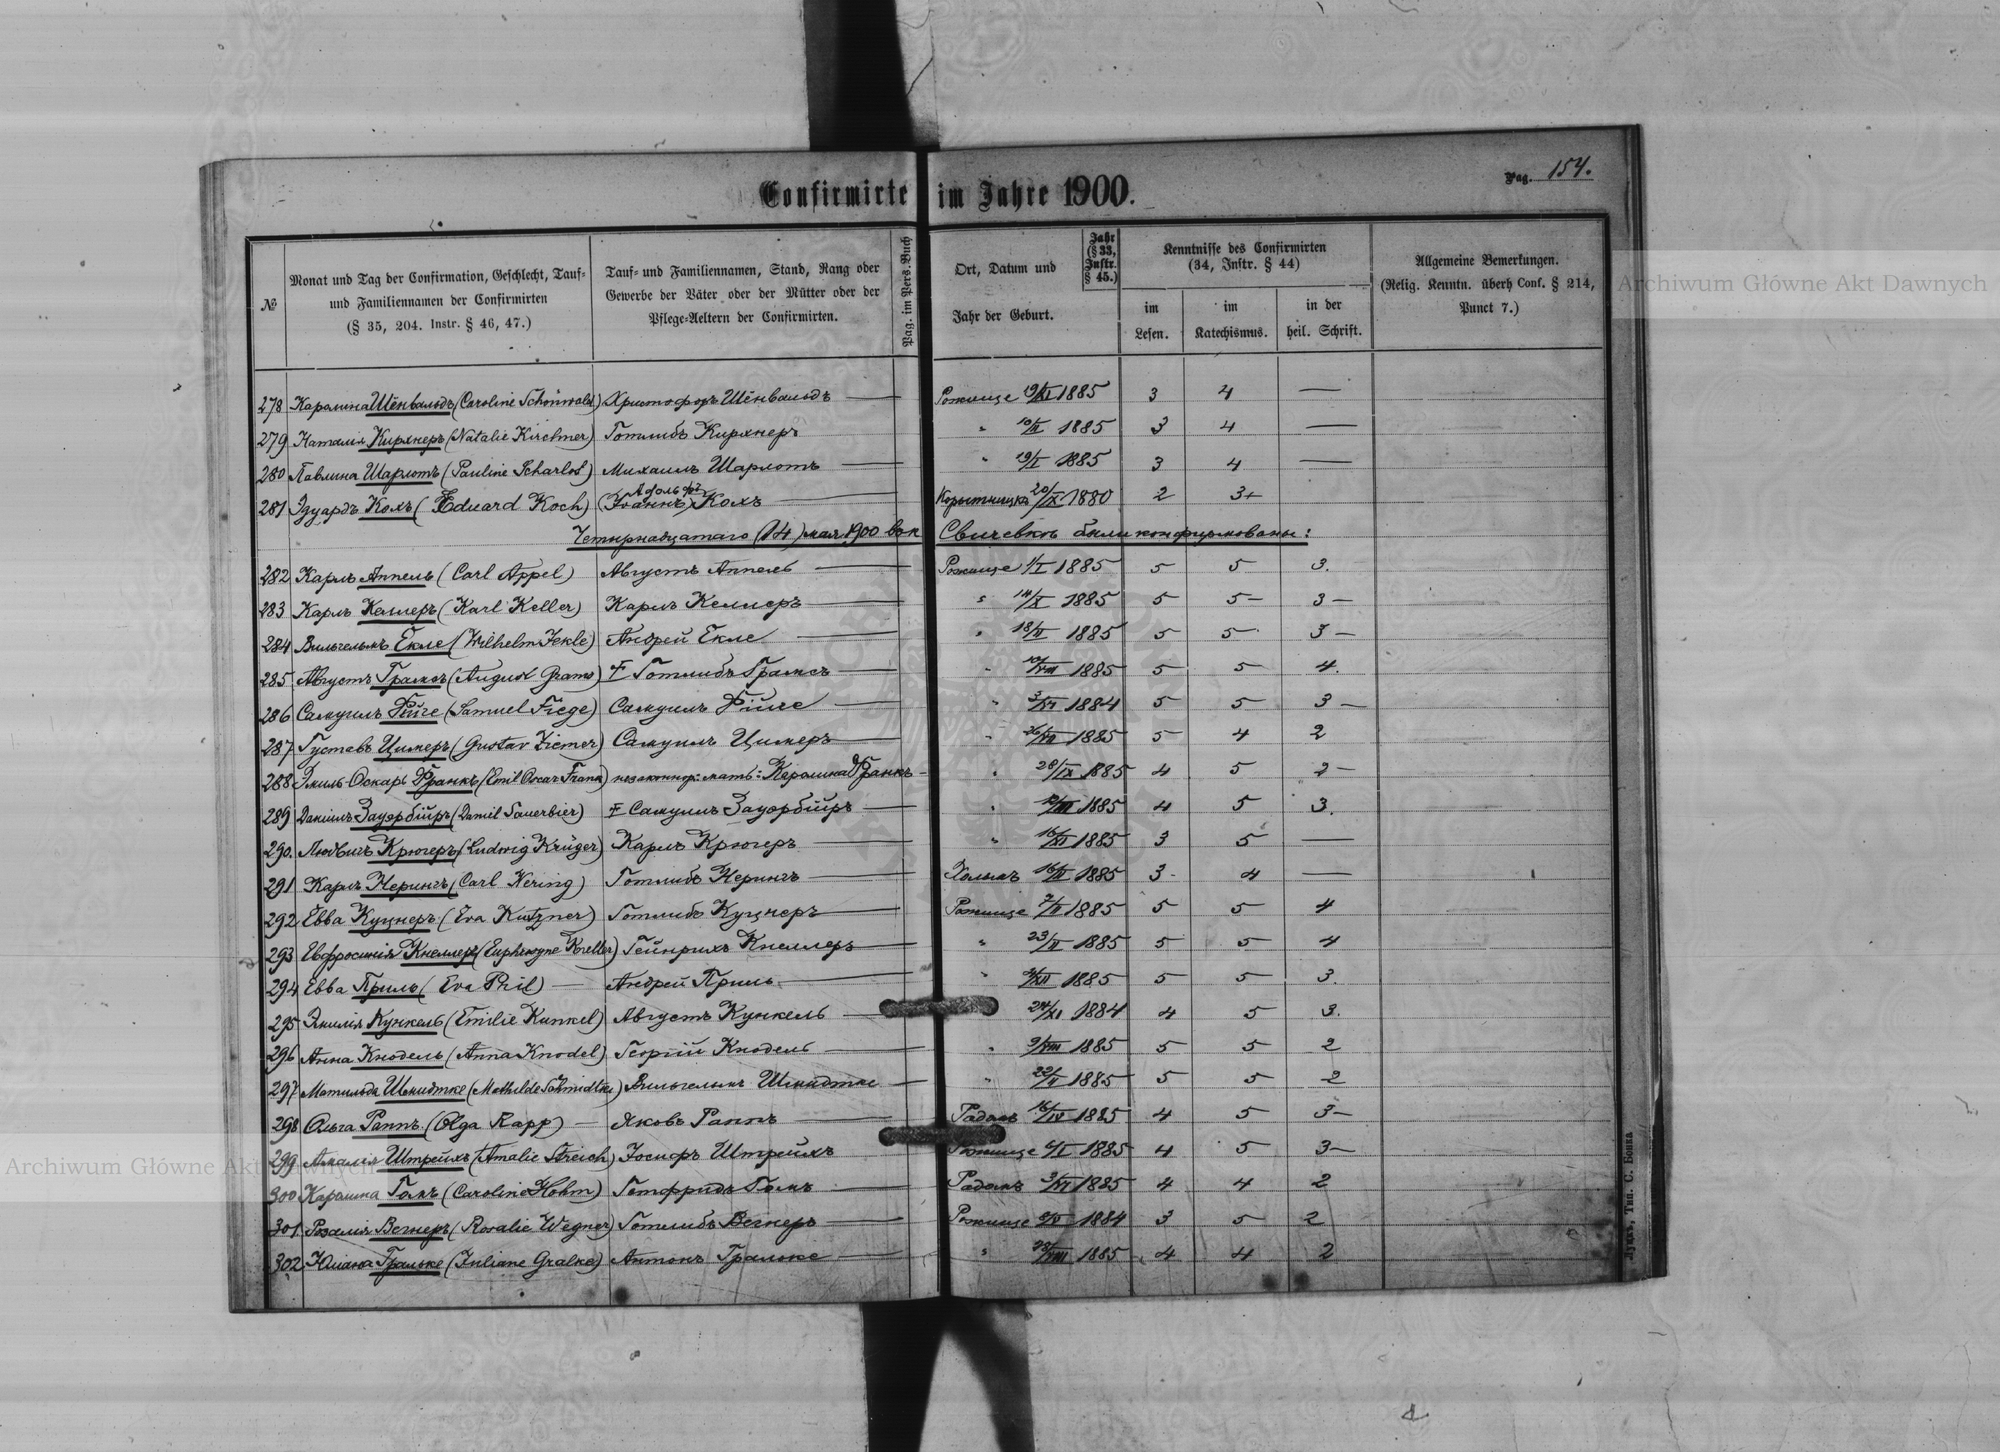 Confirmirte im Jahre 1900.
Pag. 154.
№
Monat und Tag der Confirmation, Geschlecht, Tauf-
und Familiennamen der Confirmirten
(§ 35, 204. Instr. § 46, 47.)
Tauf- und Familiennamen, Stand, Rang oder
Gewerbe der Väter oder der Mütter oder der
Pflege-Aeltern der Confirmirten.
Pag. im Pers. Buch
Ort, Datum und
Jahr der Geburt.
Jahr
(§ 33,
Instr.
§ 45.)
Kenntnisse des Confirmirten
(34, Instr. § 44)
im
Lesen.
im
Katechismus.
in der
heil. Schrift.
Allgemeine Bemerkungen.
(Relig. Kenntn. überh Conf. § 214,
Punct 7.)
278 Каролина Шёнвальдъ (Caroline Schönwald) Христофоръ Шёнвальдъ — Рожище 19/XI 1885 3 4 —
279 Наталія Кирхнеръ (Natalie Kirchner) Готлибъ Кирхнеръ " 1885 3 4 —
280 Павлина Шарлотъ (Pauline Scharlot) Михаилъ Шарлотъ — " 19/I 1885 3 4 —
281 Эдуардъ Кохъ (Eduard Koch) (Іоаннъ) Адольфъ Кохъ — Корытницкъ 20/X 1880 2 3+
Четырнадцатаго (14) мая 1900 въ к. Свичевкѣ были конфирмованы:
282 Карлъ Аппель (Carl Appel) Августъ Аппель — Рожище 1/I 1885 5 5 3.
283 Карлъ Келлеръ (Karl Keller) Карлъ Келлеръ — " 14/X 1885 5 5— 3—
284 Вильгельмъ Екле (Wilhelm Jekle) Андрей Екле — " 18/IV 1885 5 5 3—
285 Августъ Грамсъ (August Grams) † Готлибъ Грамсъ — " 1885 5 5 4.
286 Самуилъ Фиге (Samuel Fiege) Самуилъ Фиге — " 1884 5 5 3—
287 Густавъ Цимеръ (Gustav Ziemer) Самуилъ Цимеръ — " 1885 5 4 2
288 Эмиль-Оскаръ Франкъ (Emil Oscar Frank) незаконнор: мать: Каролина Франкъ — " 28/IX 1885 4 5 2—
289 Даніилъ Зауэрбіръ (Daniel Sauerbier) † Самуилъ Зауэрбіръ — " 1885 4 5 3.
290. Людвигъ Крюгеръ (Ludwig Krüger) Карлъ Крюгеръ — " 1885 3 5 —
291 Карлъ Нерингъ (Carl Nering) Готлибъ Нерингъ — 1885 3 4 —
292 Евва Куцнеръ (Eva Kutzner) Готлибъ Куцнеръ — Рожище 1885 5 5 4
293 Евфросинія Кнеллеръ (Euphrosyne Kneller) Гейнрихъ Кнеллеръ — " 1885 5 5 4
294 Евва Приль (Eva Pril) — Андрей Приль — " 1885 5 5 3.
295 Эмилія Кункель (Emilie Kunkel) Августъ Кункель — 24/XI 1884 4 5 3.
296 Анна Кнодель (Anna Knodel) Георгій Кнодель — " 9/VIII 1885 5 5 2
297 Матильда Шмидтке (Mathilde Schmidtke) Вильгельмъ Шмидтке — " 1885 5 5 2
298 Ольга Раппъ (Olga Rapp) — Яковъ Раппъ — 16/IV 1885 4 5 3—
299 Амалія Штрейхъ (Amalie Streich) Іосифъ Штрейхъ Рожище 1885 4 5 3—
300 Каролина Гомъ (Caroline Hohm) Готфридъ Гомъ — 1885 4 4 2
301. Розалія Вегнеръ (Rosalie Wegner) Готлибъ Вегнеръ — Рожище 1884 3 5 2
302 Юліана Гральке (Juliane Gralke) Антонъ Гральке — " 1885 4 4 2
Луцкъ, Тип. С. Бонка
Archiwum Główne Akt Dawnych
Archiwum Główne Akt Dawnych